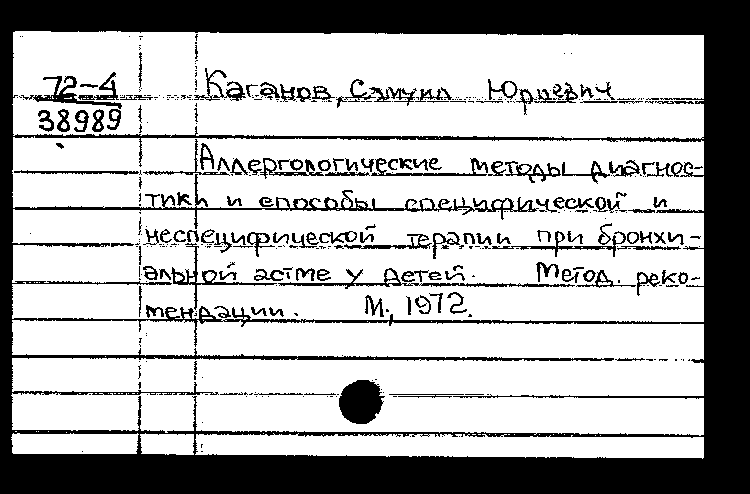 72-4 Каганов, Сэмуил Юрьевич
38989
Аллергологические методы диагнос-
тики и способы специфической и
неспецифической терапии при бронхи-
альной астме у детей. Метод. реко-
мендации. М., 1972.